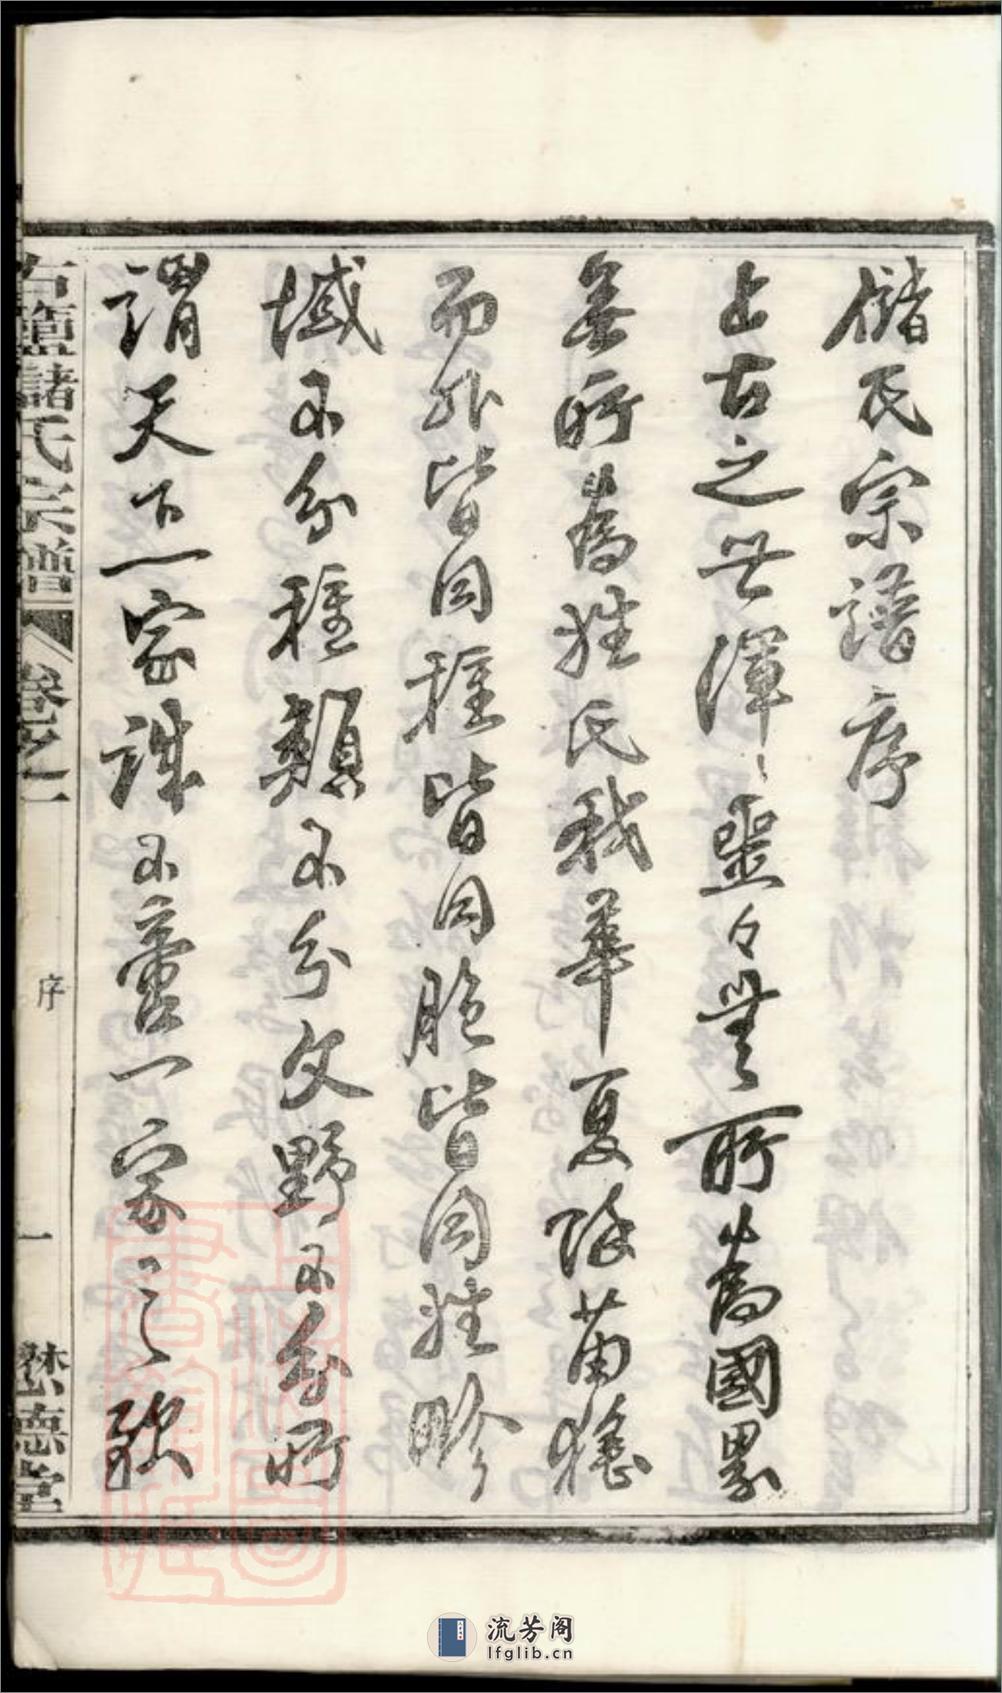 儲氏宗譜序
上古之世渾渾噩々無所為國界
無所為姓氏我華夏除苗猺
而外皆同種皆同胞皆同姓畛
域不分種類不分文野不分所
謂天下一家誰不啻一家之親
諸氏宗譜
卷之一
序
一
懋德堂
流芳阁
lfglib.cn